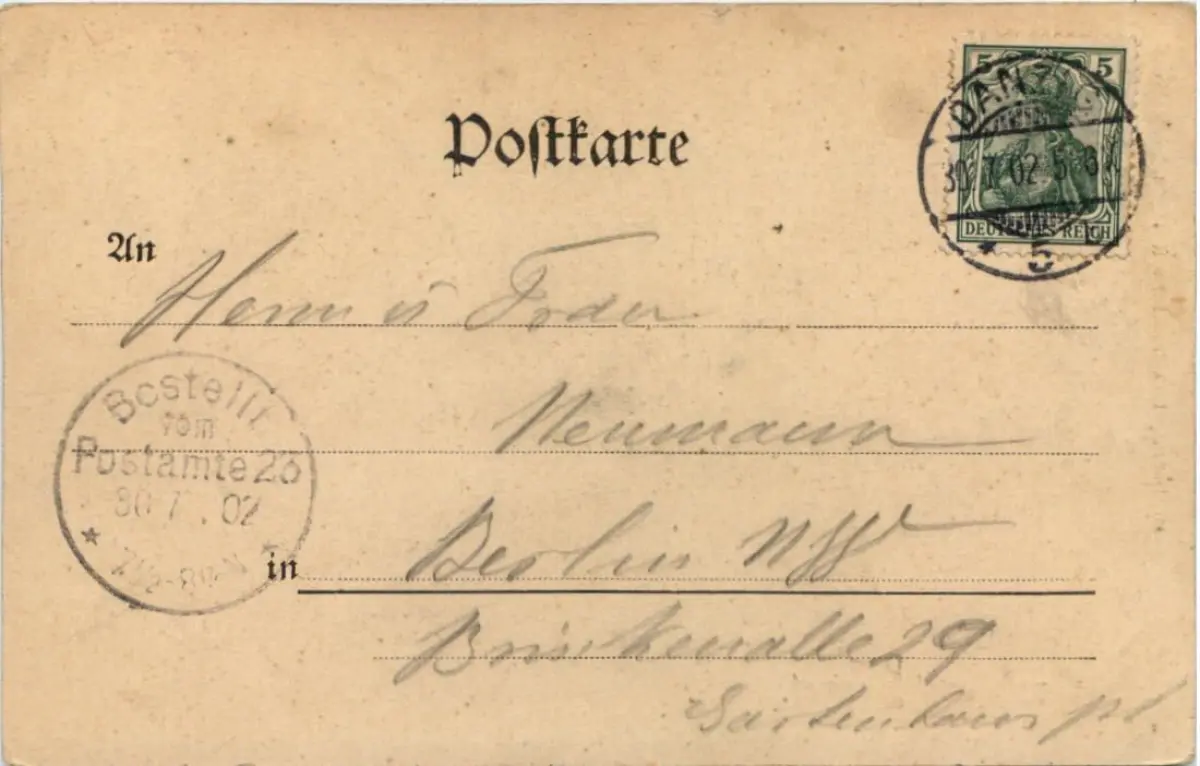 Postkarte
5 5
DANZIG
30.7.02.5-6N.
DEUTSCHES REICH
* 5
An
Herrn u Frau
Neumann
Bestellt
vom
Postamte 26
30 7. 02
in
Berlin NW
29
Gartenhaus pt.